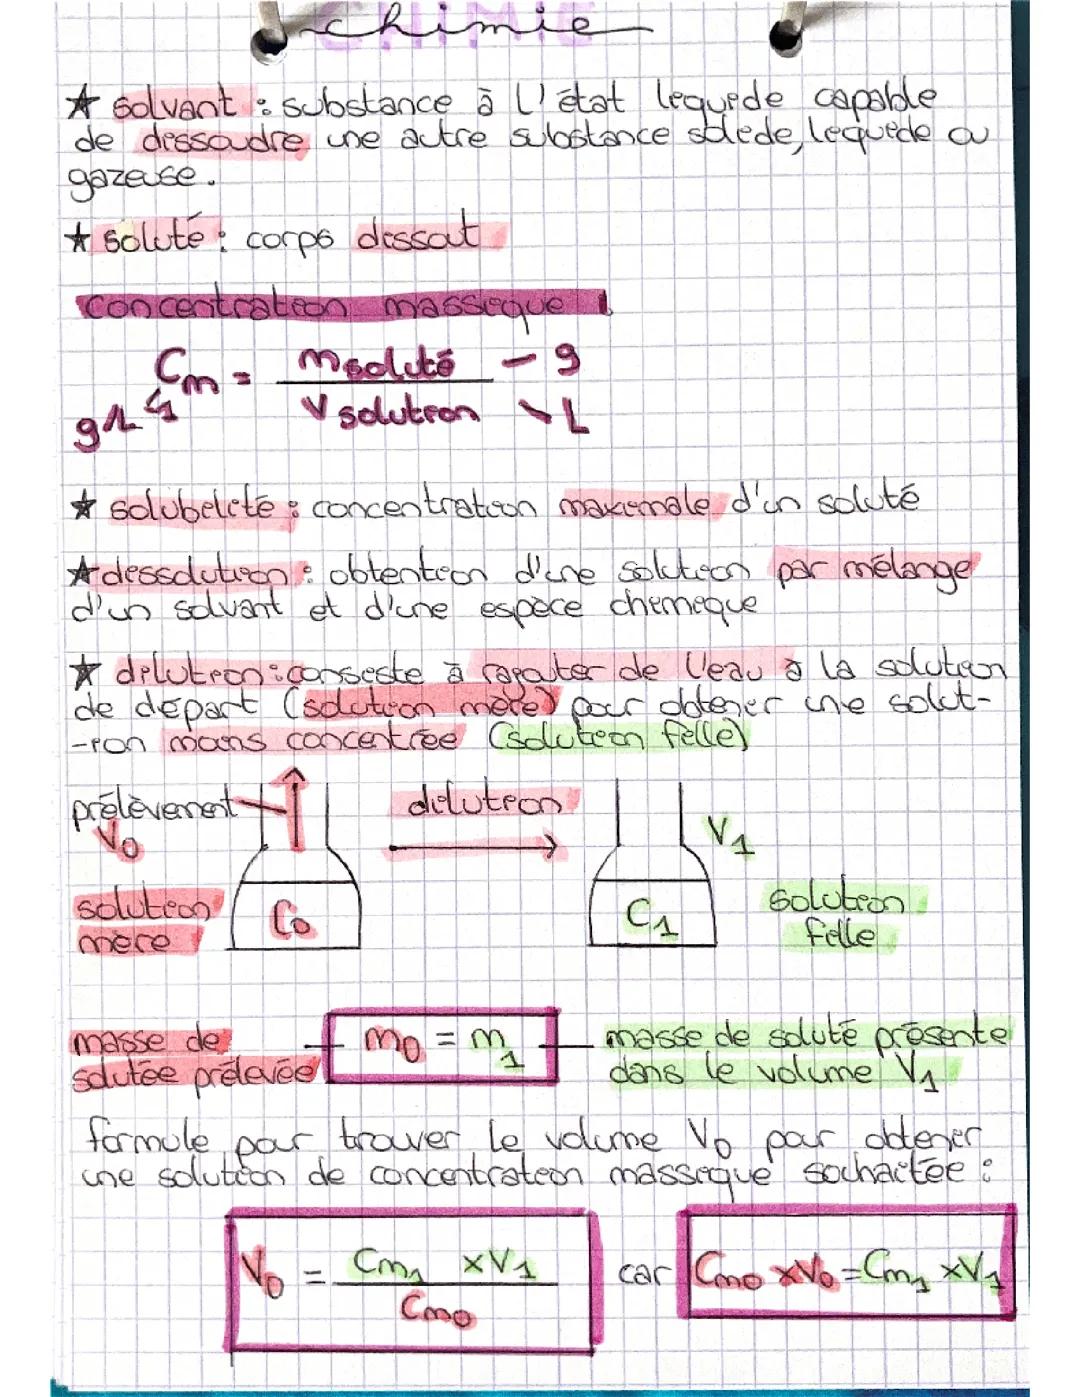 chimie
★ solvant : substance à l'état liquide capable
de dissoudre une autre substance solide, liquide ou
gazeuse.
★ soluté : corps dissout
concentration massique
Cm = m soluté / V solution
g
L
g/L
★ solubilité : concentration maximale d'un soluté
★ dissolution : obtention d'une solution par mélange
d'un solvant et d'une espèce chimique
★ dilution : consiste à rajouter de l'eau à la solution
de départ (solution mère) pour obtenir une solut-
-ion moins concentrée (solution fille)
prélèvement
V₀
dilution
V₁
solution
mère
C₀
C₁
solution
fille
masse de
solutée prélevée
m₀ = m₁
masse de soluté présente
dans le volume V₁
formule pour trouver le volume V₀ pour obtener
une solution de concentration massique souhaitée :
V₀ = Cm₁ × V₁ / Cm₀
car
Cm₀ × V₀ = Cm₁ × V₁